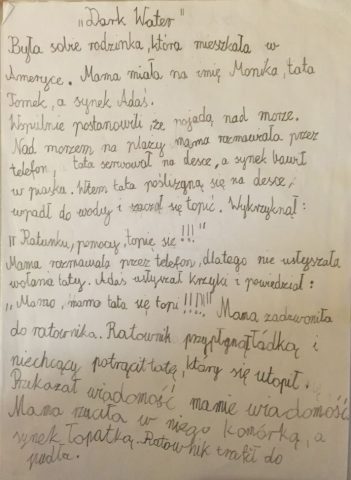 „Dark Water"
Była sobie rodzinka, która mieszkała w
Ameryce. Mama miała na imię Monika, tata
Tomek, a synek Adaś.
Wspulnie postanowili, że pojadą nad morze.
Nad morzem na plaży mama rozmawała przez
telefon, tata serwował na desce, a synek bawił
w piasku. Wtem tata pośliznął się na desce,
wpadł do wody i zaczął się topić. Wykrzyknął:
„Ratunku, pomocy, topię się!!!"
Mama rozmawała przez telefon, dlatego nie usłyszała
wołania taty. Adaś usłyszał krzyki i powiedział:
„Mamo, mamo tata się topi!!!!" Mama zadzwoniła
do ratownika. Ratownik przypłynął łódką i
niechcący potrącił tatę, który się utopił.
Przekazał wiadomość mamie wiadomość.
Mama rzuciła w niego komórką, a
synek łopatką. Ratownik trafił do
pudła.